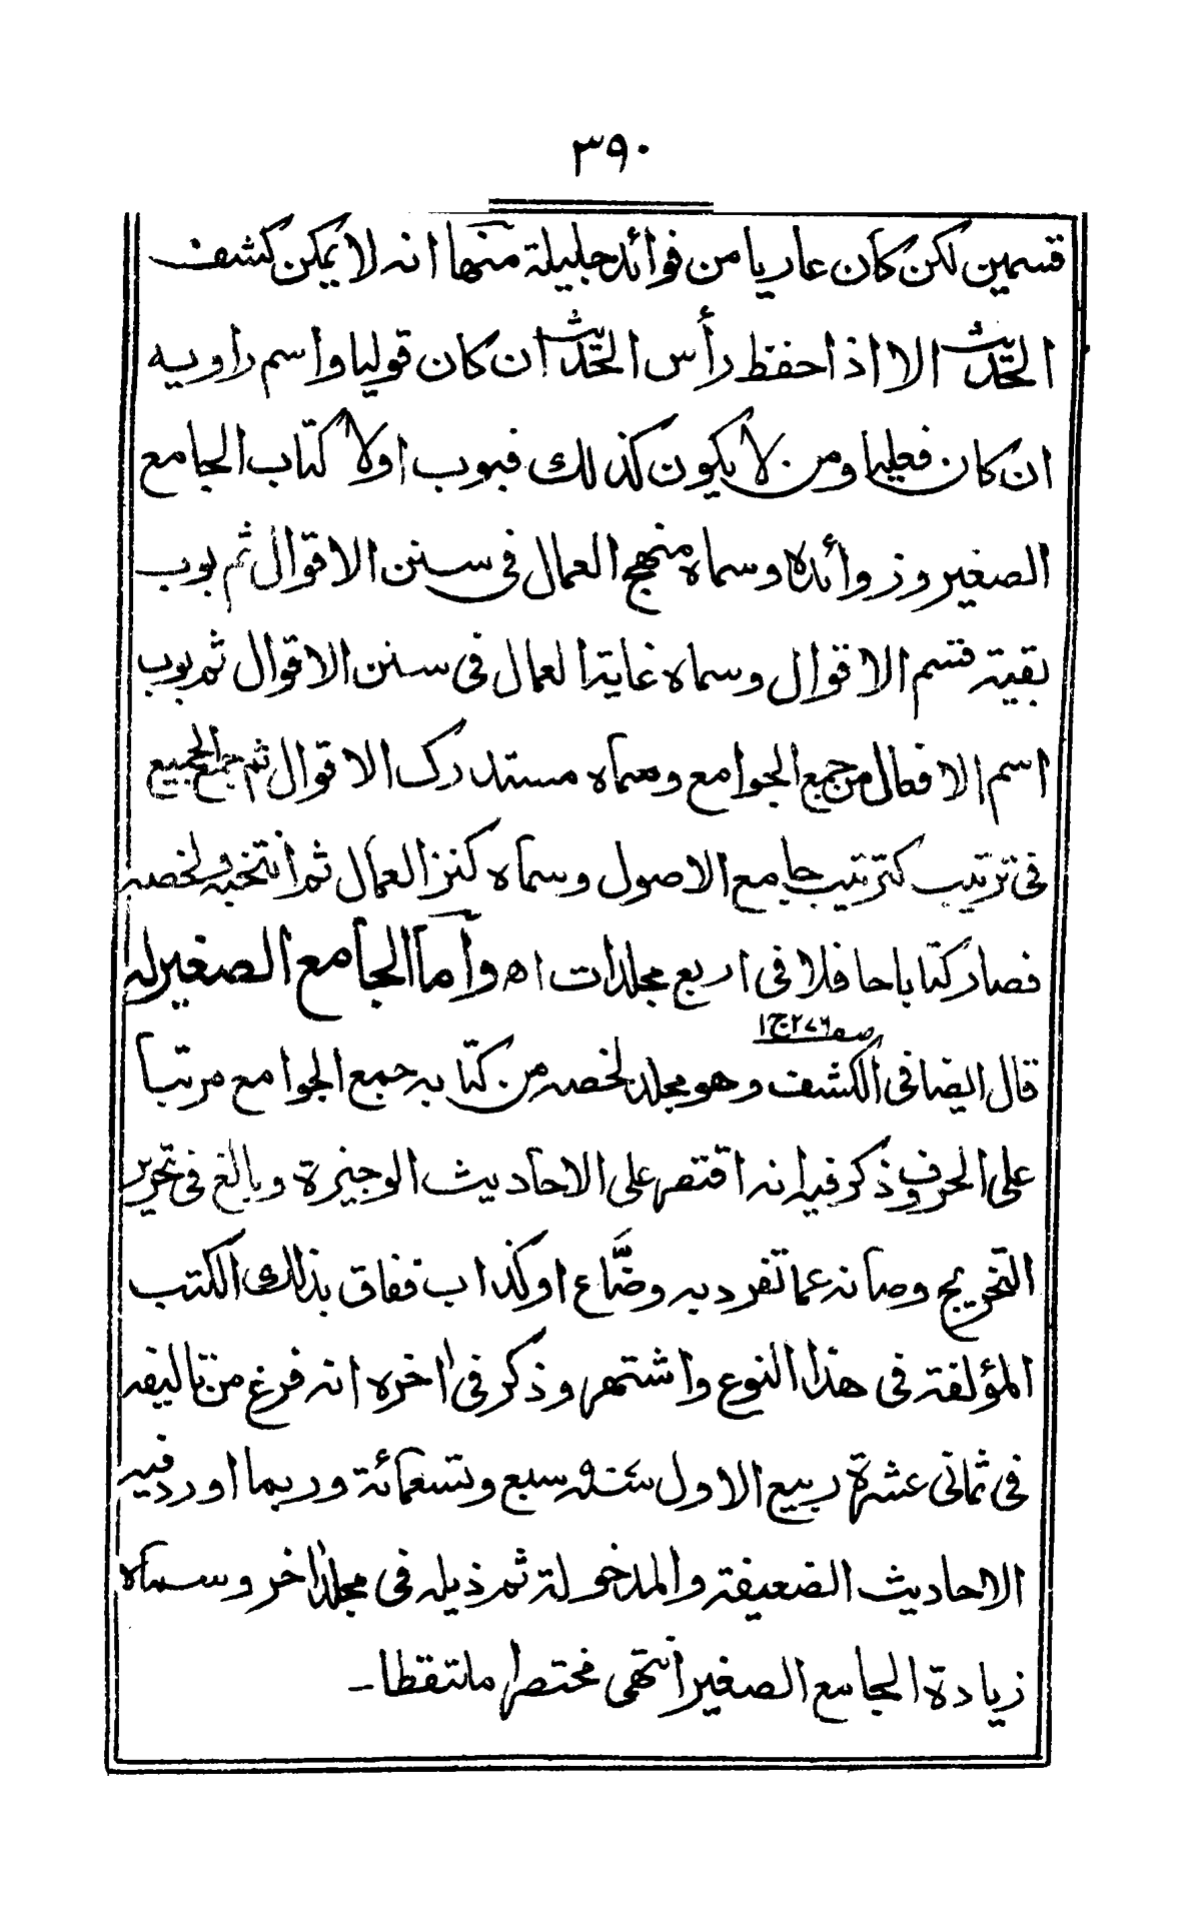 ٣٩٠
قسمين لكن كان عاريا من فوائد جليلة منها انه لا يمكن كشف
الحديث الا اذا حفظ رأس الحديث ان كان قوليا واسم راويه
ان كان فعليا ومن لا يكون كذلك فبوب اولا كتاب الجامع
الصغير وزوائده وسماه منهج العمال فى سنن الاقوال ثم بوب
بقية قسم الاقوال وسماه غاية العمال فى سنن الاقوال ثم بوب
اسم الافعال من جمع الجوامع وسماه مستدرك الاقوال ثم جمع الجميع
فى ترتيب كترتيب جامع الاصول وسماه كنز العمال ثم انتخبه ولخصه
فصار كتابا حافلا فى اربع مجلدات اه وأما الجامع الصغير له
صـ ٢٧٦ ج١
قال ايضا فى الكشف وهو مجلد لخصه من كتابه جمع الجوامع مرتبا
على الحروف ذكر فيه انه اقتصر على الاحاديث الوجيزة وبالغ فى تحرير
التخريج وصانه عما تفرد به وضّاع او كذاب ففاق بذلك الكتب
المؤلفة فى هذا النوع واشتهر وذكر فى اخره انه فرغ من تاليفه
فى ثمانى عشرة ربيع الاول سنة سبع وتسعمائة وربما اورد فيه
الاحاديث الضعيفة والمدخولة ثم ذيله فى مجلد اخر وسماه
زيادة الجامع الصغير انتهى مختصرا ملتقطا۔